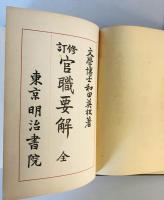 文學博士和田英松著
修訂 官職要解 全
東京 明治書院